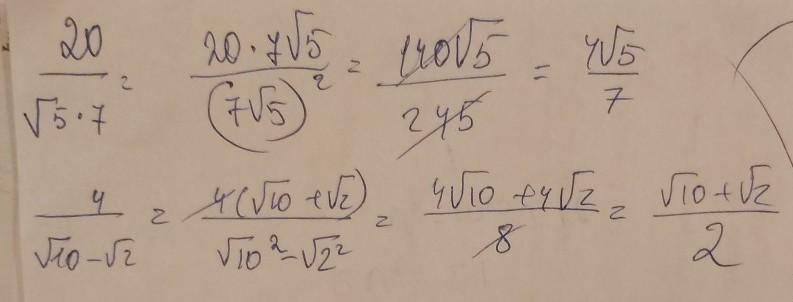 20/(√5·7) = 20·7√5/(7√5)² = 140√5/245 = 4√5/7
4/(√10-√2) = 4(√10+√2)/(√10²-√2²) = (4√10+4√2)/8 = (√10+√2)/2